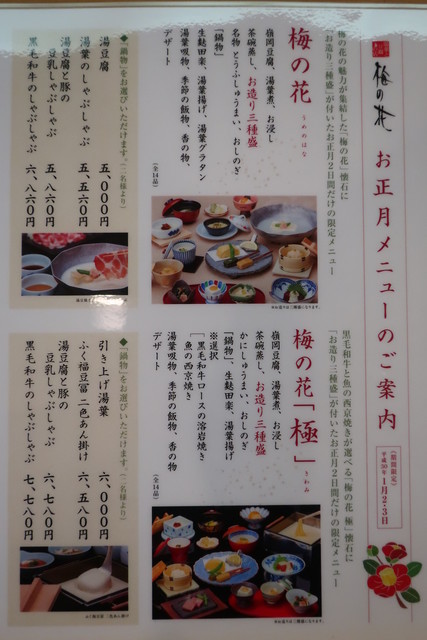 梅の花 お正月メニューのご案内
〈期間限定〉
平成30年1月2・3日
梅の花の魅力が集結した「梅の花」懐石に
「お造り三種盛」が付いたお正月2日間だけの限定メニュー
梅の花
うめのはな
嶺岡豆腐、湯葉煮、お浸し
茶碗蒸し、お造り三種盛
名物 とうふしゅうまい、おしのぎ
「鍋物」
生麩田楽、湯葉揚げ、湯葉グラタン
湯葉吸物、季節の飯物、香の物、
デザート
(全14品)
◆「鍋物」をお選びいただけます。(二名様より)
湯豆腐 五、000円
湯葉のしゃぶしゃぶ 五、五六0円
湯豆腐と豚の
豆乳しゃぶしゃぶ 五、八六0円
黒毛和牛のしゃぶしゃぶ 六、八六0円
黒毛和牛と魚の西京焼きが選べる「梅の花 極」懐石に
「お造り三種盛」が付いたお正月2日間だけの限定メニュー
梅の花「極」
きわみ
嶺岡豆腐、湯葉煮、お浸し
茶碗蒸し、お造り三種盛
かにしゅうまい、おしのぎ
「鍋物」、生麩田楽、湯葉揚げ
※選択
黒毛和牛ロースの溶岩焼き
魚の西京焼き
湯葉吸物、季節の飯物、香の物
デザート
(全14品)
◆「鍋物」をお選びいただけます。(二名様より)
引き上げ湯葉 六、000円
ふく福豆冨 二色あん掛け 六、五八0円
湯豆腐と豚の
豆乳しゃぶしゃぶ 六、七八0円
黒毛和牛のしゃぶしゃぶ 七、七八0円